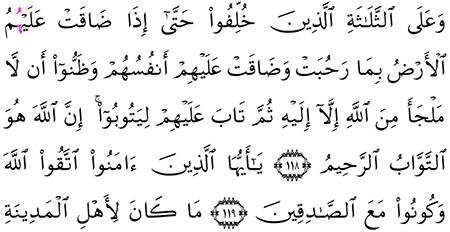 وَعَلَى ٱلثَّلَـٰثَةِ ٱلَّذِينَ خُلِّفُوا۟ حَتَّىٰٓ إِذَا ضَاقَتْ عَلَيْهُمُ
ٱلْأَرْضُ بِمَا رَحُبَتْ وَضَاقَتْ عَلَيْهِمْ أَنفُسُهُمْ وَظَنُّوٓا۟ أَن لَّا
مَلْجَأَ مِنَ ٱللَّهِ إِلَّآ إِلَيْهِ ثُمَّ تَابَ عَلَيْهِمْ لِيَتُوبُوٓا۟ ۚ إِنَّ ٱللَّهَ هُوَ
ٱلتَّوَّابُ ٱلرَّحِيمُ ١١٨ يَـٰٓأَيُّهَا ٱلَّذِينَ ءَامَنُوا۟ ٱتَّقُوا۟ ٱللَّهَ
وَكُونُوا۟ مَعَ ٱلصَّـٰدِقِينَ ١١٩ مَا كَانَ لِأَهْلِ ٱلْمَدِينَةِ